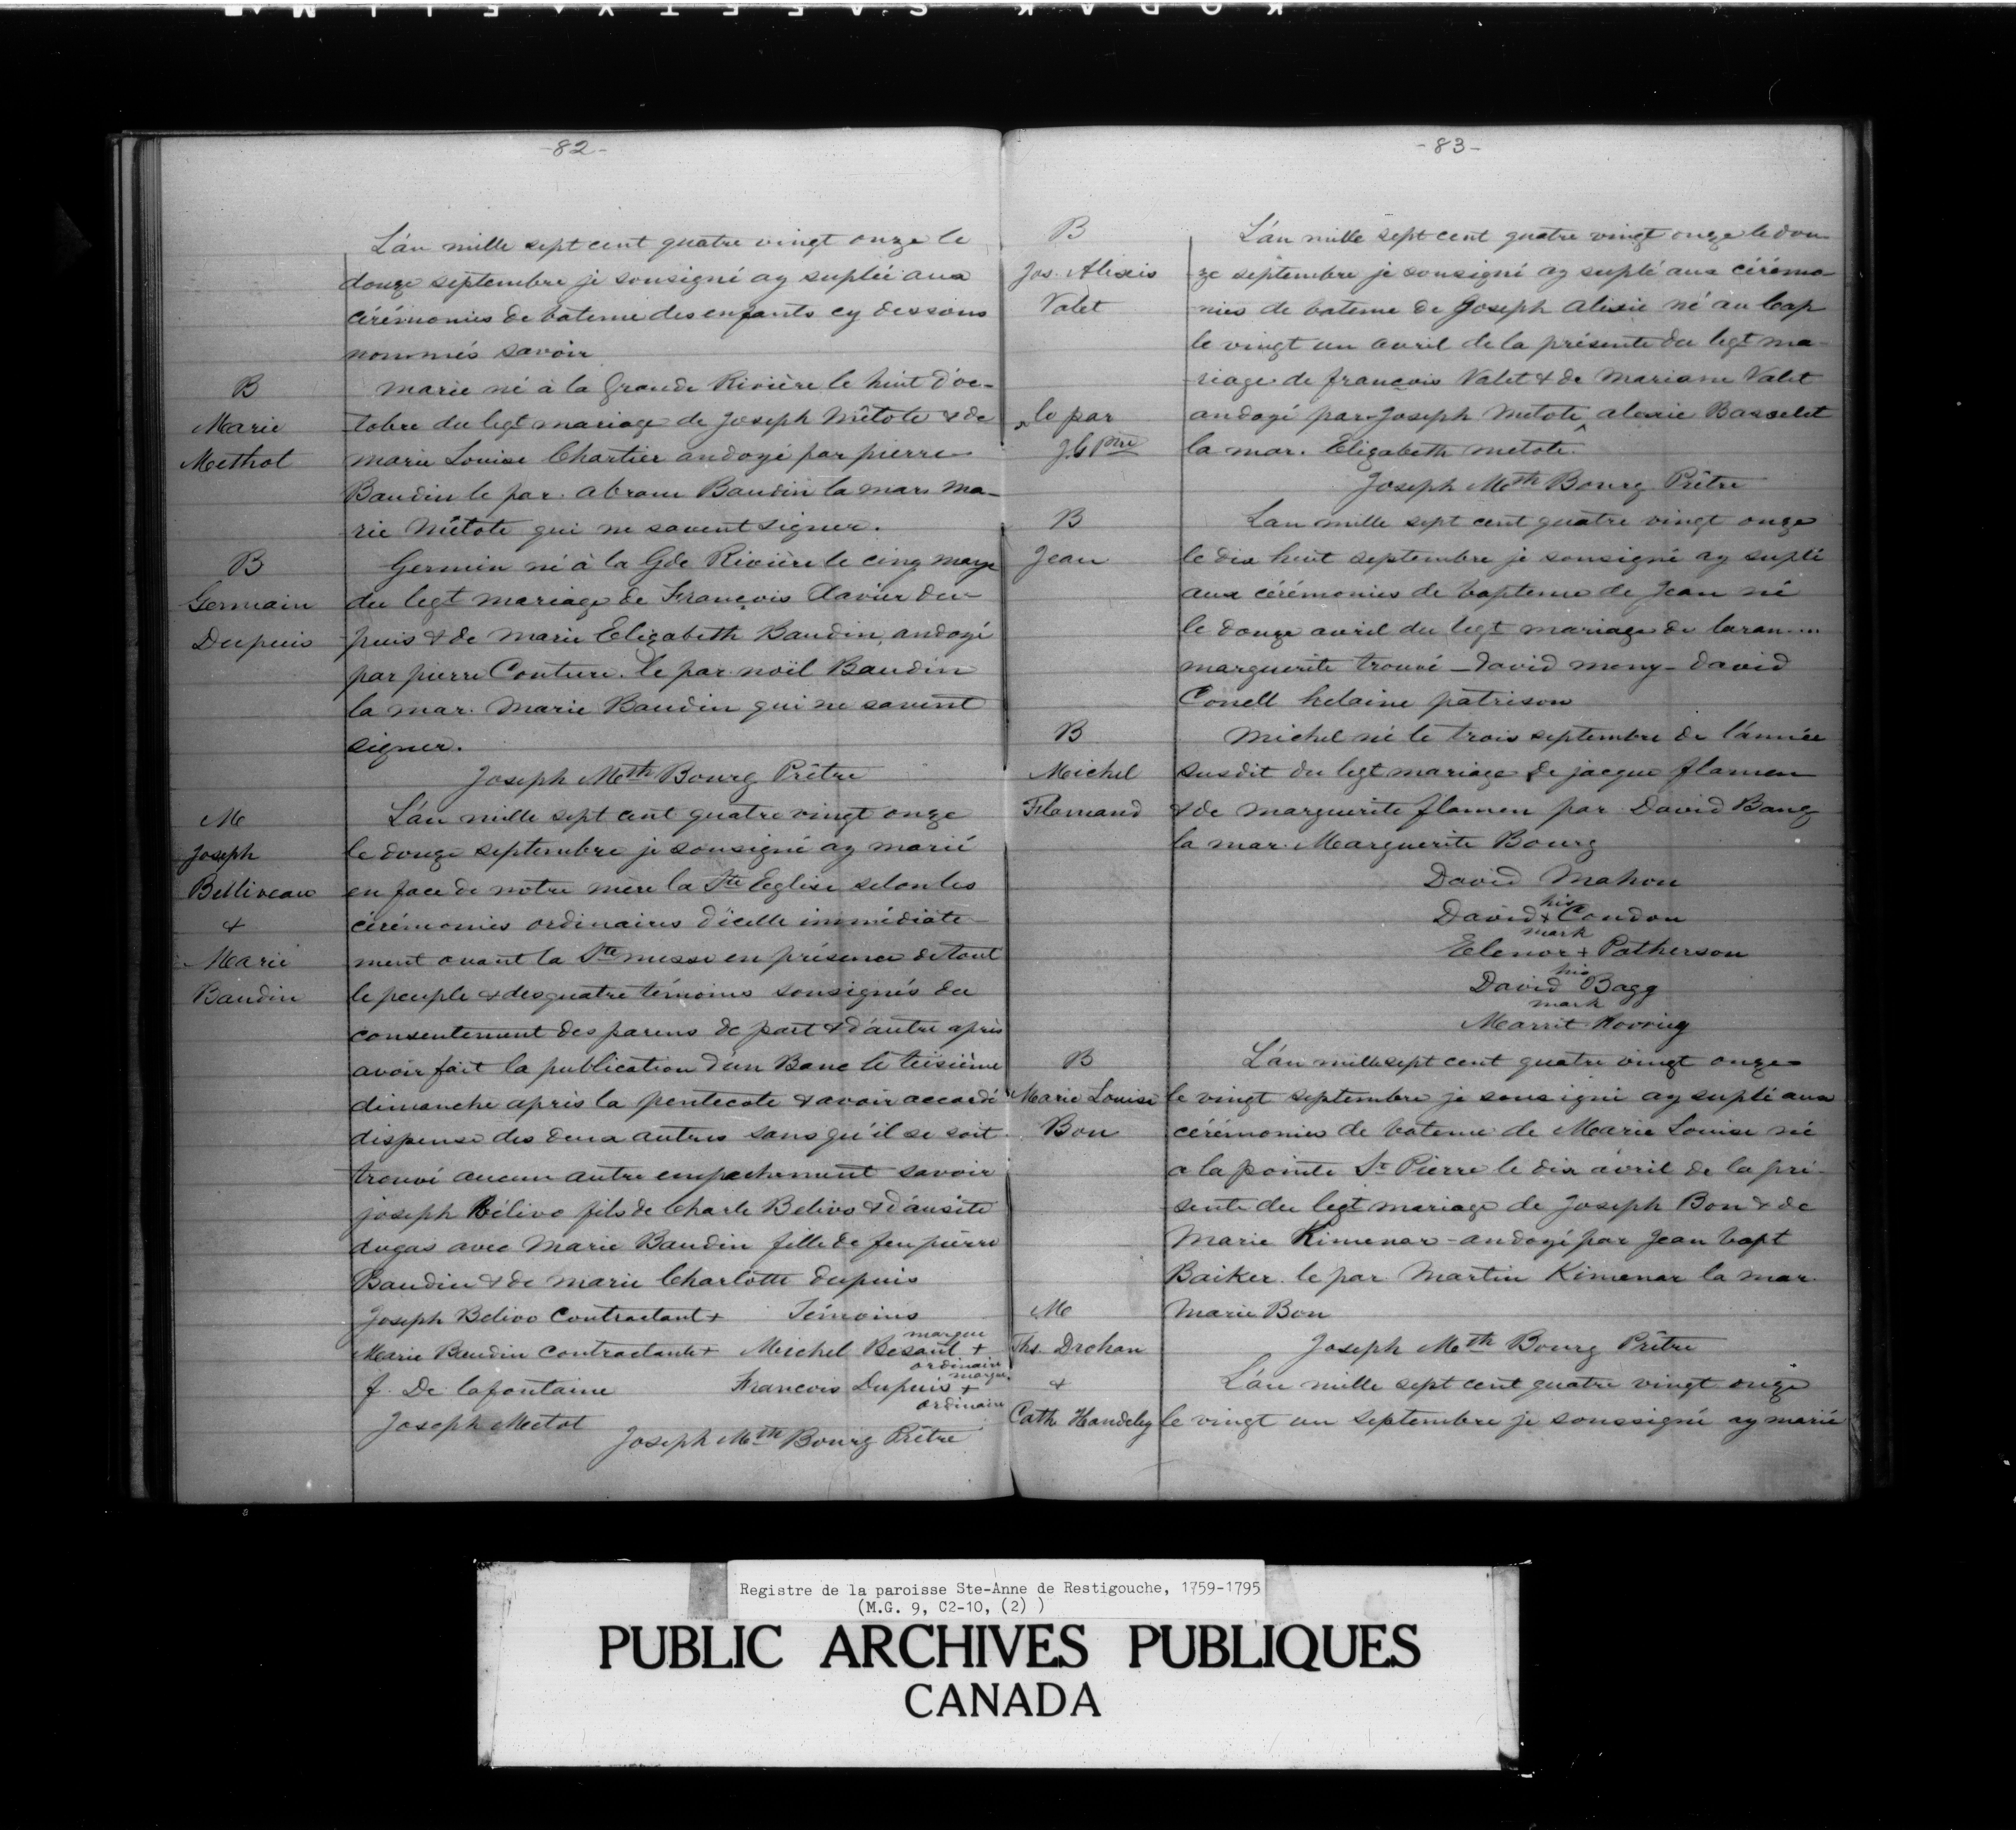 -82-
L'án mille sept cent quatre vingt onze le
douze septembre je sousigné ay suplée aux
cérémonies de bateme des enfants cy dessous
nommés savoir
B
Marie
Methot
marie né à la Grande Rivière le huit d'oc-
tobre du legt mariage de Joseph Mêtote & de
marie Louise Chartier andoyé par pierre
Baudin le par. abram Baudin la mar. Ma-
rie Mêtote qui ne savent signer.
B
Germain
Dupuis
Germin né à la Gde Rivière le cinq
du legt mariage de Francois Xavier du-
puis & de Marie Elizabeth Baudin, andoyé
par pierre Couture. le par. noïl Baudin
la mar. Marie Baudin qui ne savent
signer.
Joseph Mth Bourg Prêtre
M
Joseph
Belliveau
&
Marie
Baudin
L'án mille sept cent quatre vingt onze
le douze septembre je sousigné ay marié
en face de notre mère la Ste Eglise selon les
cérémonies ordinaires d'icelle immédiate-
ment avant la Ste messe en présence de tout
le peuple & des quatre témoins sousignés du
consentement des parens de part & d'autre après
avoir fait la publication d'un Banc le
dimanche après la pentecote & avoir accordé
dispense des deux autres sans qu'il se soit
trouvé aucun autre empechement savoir
joseph Bélivo fils de Charle Belivo &
dugas avec Marie Baudin fille de feu pierre
Baudin & de marie Charlotte dupuis
Joseph Belivo Contractant + Témoins
Marie Baudin Contractante + Michel + marque ordinaire
J. De lafontaine Francois Dupuis + marque ordinaire
Joseph Metot
Joseph Mth Bourg Prêtre
-83-
B
Jos. Alexis
Valet
L'án mille sept cent quatre vingt onze le dou
ze septembre je sousigné ay suplé aux cérémo-
nies de bateme de Joseph alexie né au Cap
le vingt un avril de la présente du legt ma-
riage de francois Valet & de Mariane Valet
^ le par
J B Ptre
andoyé par Joseph Metote ^ alexie Basselet
la mar. Elizabeth metote.
Joseph Mth Bourg Prêtre
B
Jean
Lan mille sept cent quatre vingt onze
le dix huit septembre je sousigné ay suplé
aux cérémonies de bapteme de Jean né
le douze avril du legt mariage de laran....
marguerite trouvé - David meny - david
Conell helaine patrison
B
Michel
Flamand
Michel né le trois septembre de l'ánnée
susdit du legt mariage de jacque flamen
& de marguerite flamen par David Bang
la mar. Marguerite Bourg
David Mahon
David his + mark Condon
Elenor + Patherson
David his mark Bagg
Marrit
B
Marie Louise
Bon
L'án mille sept cent quatre vingt onze
le vingt septembre je sous igné ay suplé aux
cérémonies de bateme de Marie Louise né
a la pointe St Pierre le dix avril de la pré-
sente du legt mariage de Joseph Bon & de
Marie Kimenar - andoyé par Jean bapt
Baiker. le par. Martin Kimenar la mar.
Marie Bon
Joseph Mth Bourg Prêtre
M
Ths. Drohan
&
Cath Handeley
L'án mille sept cent quatre vingt onze
le vingt un septembre je soussigné ay marié
Registre de la paroisse Ste-Anne de Restigouche, 1759-1795
(M.G. 9, C2-10, (2) )
PUBLIC ARCHIVES PUBLIQUES
CANADA